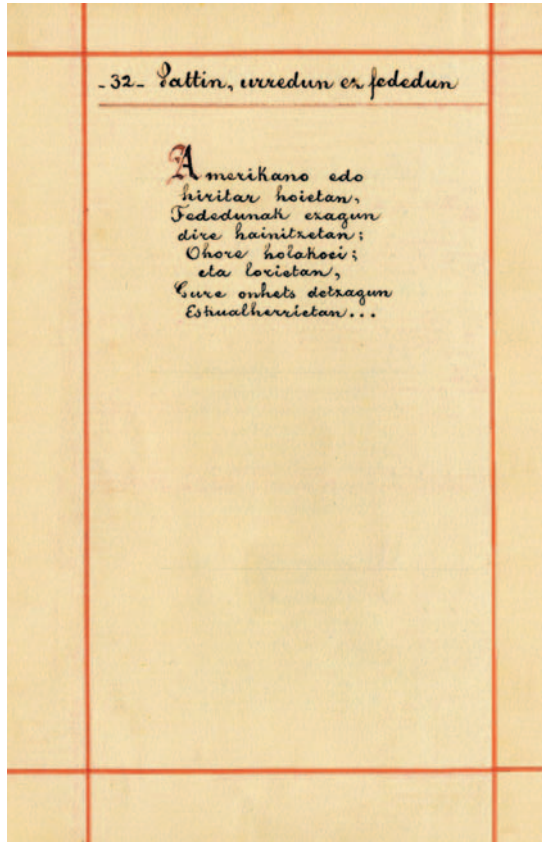 -32- Pattin, urredun ez fededun
Amerikano edo
hiritar hoietan,
Fededunak ezagun
dire hainitzetan;
Ohore holakoei;
eta lorietan,
Gure onhets detzagun
Eskualherrietan...